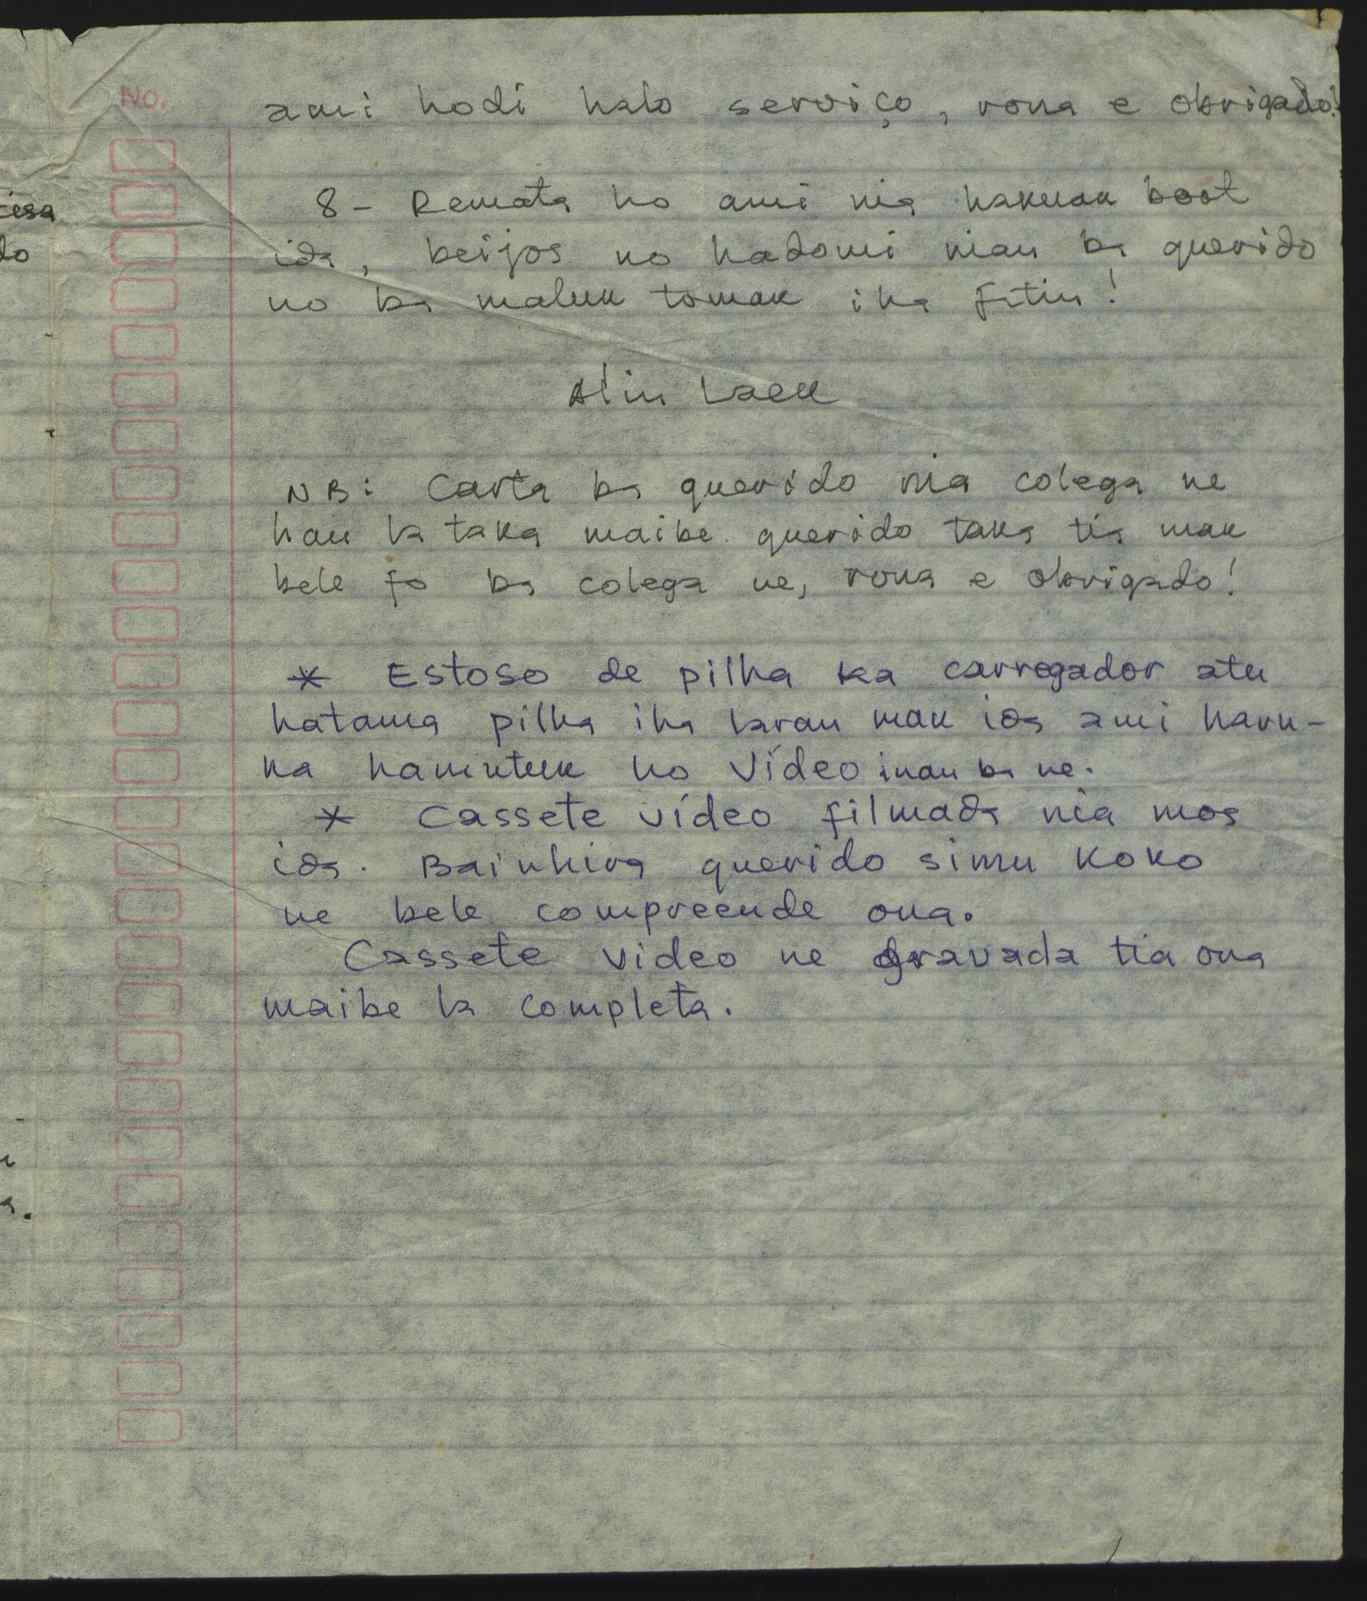 No.
ami hodi halo serviço, rona e obrigado!
8 - Remata ho ami nia hakuak boot
ida, beijos no hadomi nian ba querido
no ba maluk tomak iha fitin!
Alin Laek
NB: Carta ba querido nia colega ne
hau la taka maibe querido taka tia mak
bele fo ba colega ne, rona e obrigado!
* Estoso de pilha ka carregador atu
hatama pilha iha laran mak ida ami haru-
ka hamutuk ho Vídeo inan ba ne.
* Cassete vídeo filmada nia mos
ida. Bainhira querido simu Koko
ne bele compreende ona.
Cassete video ne gravada tia ona
maibe la completa.
cisa
do